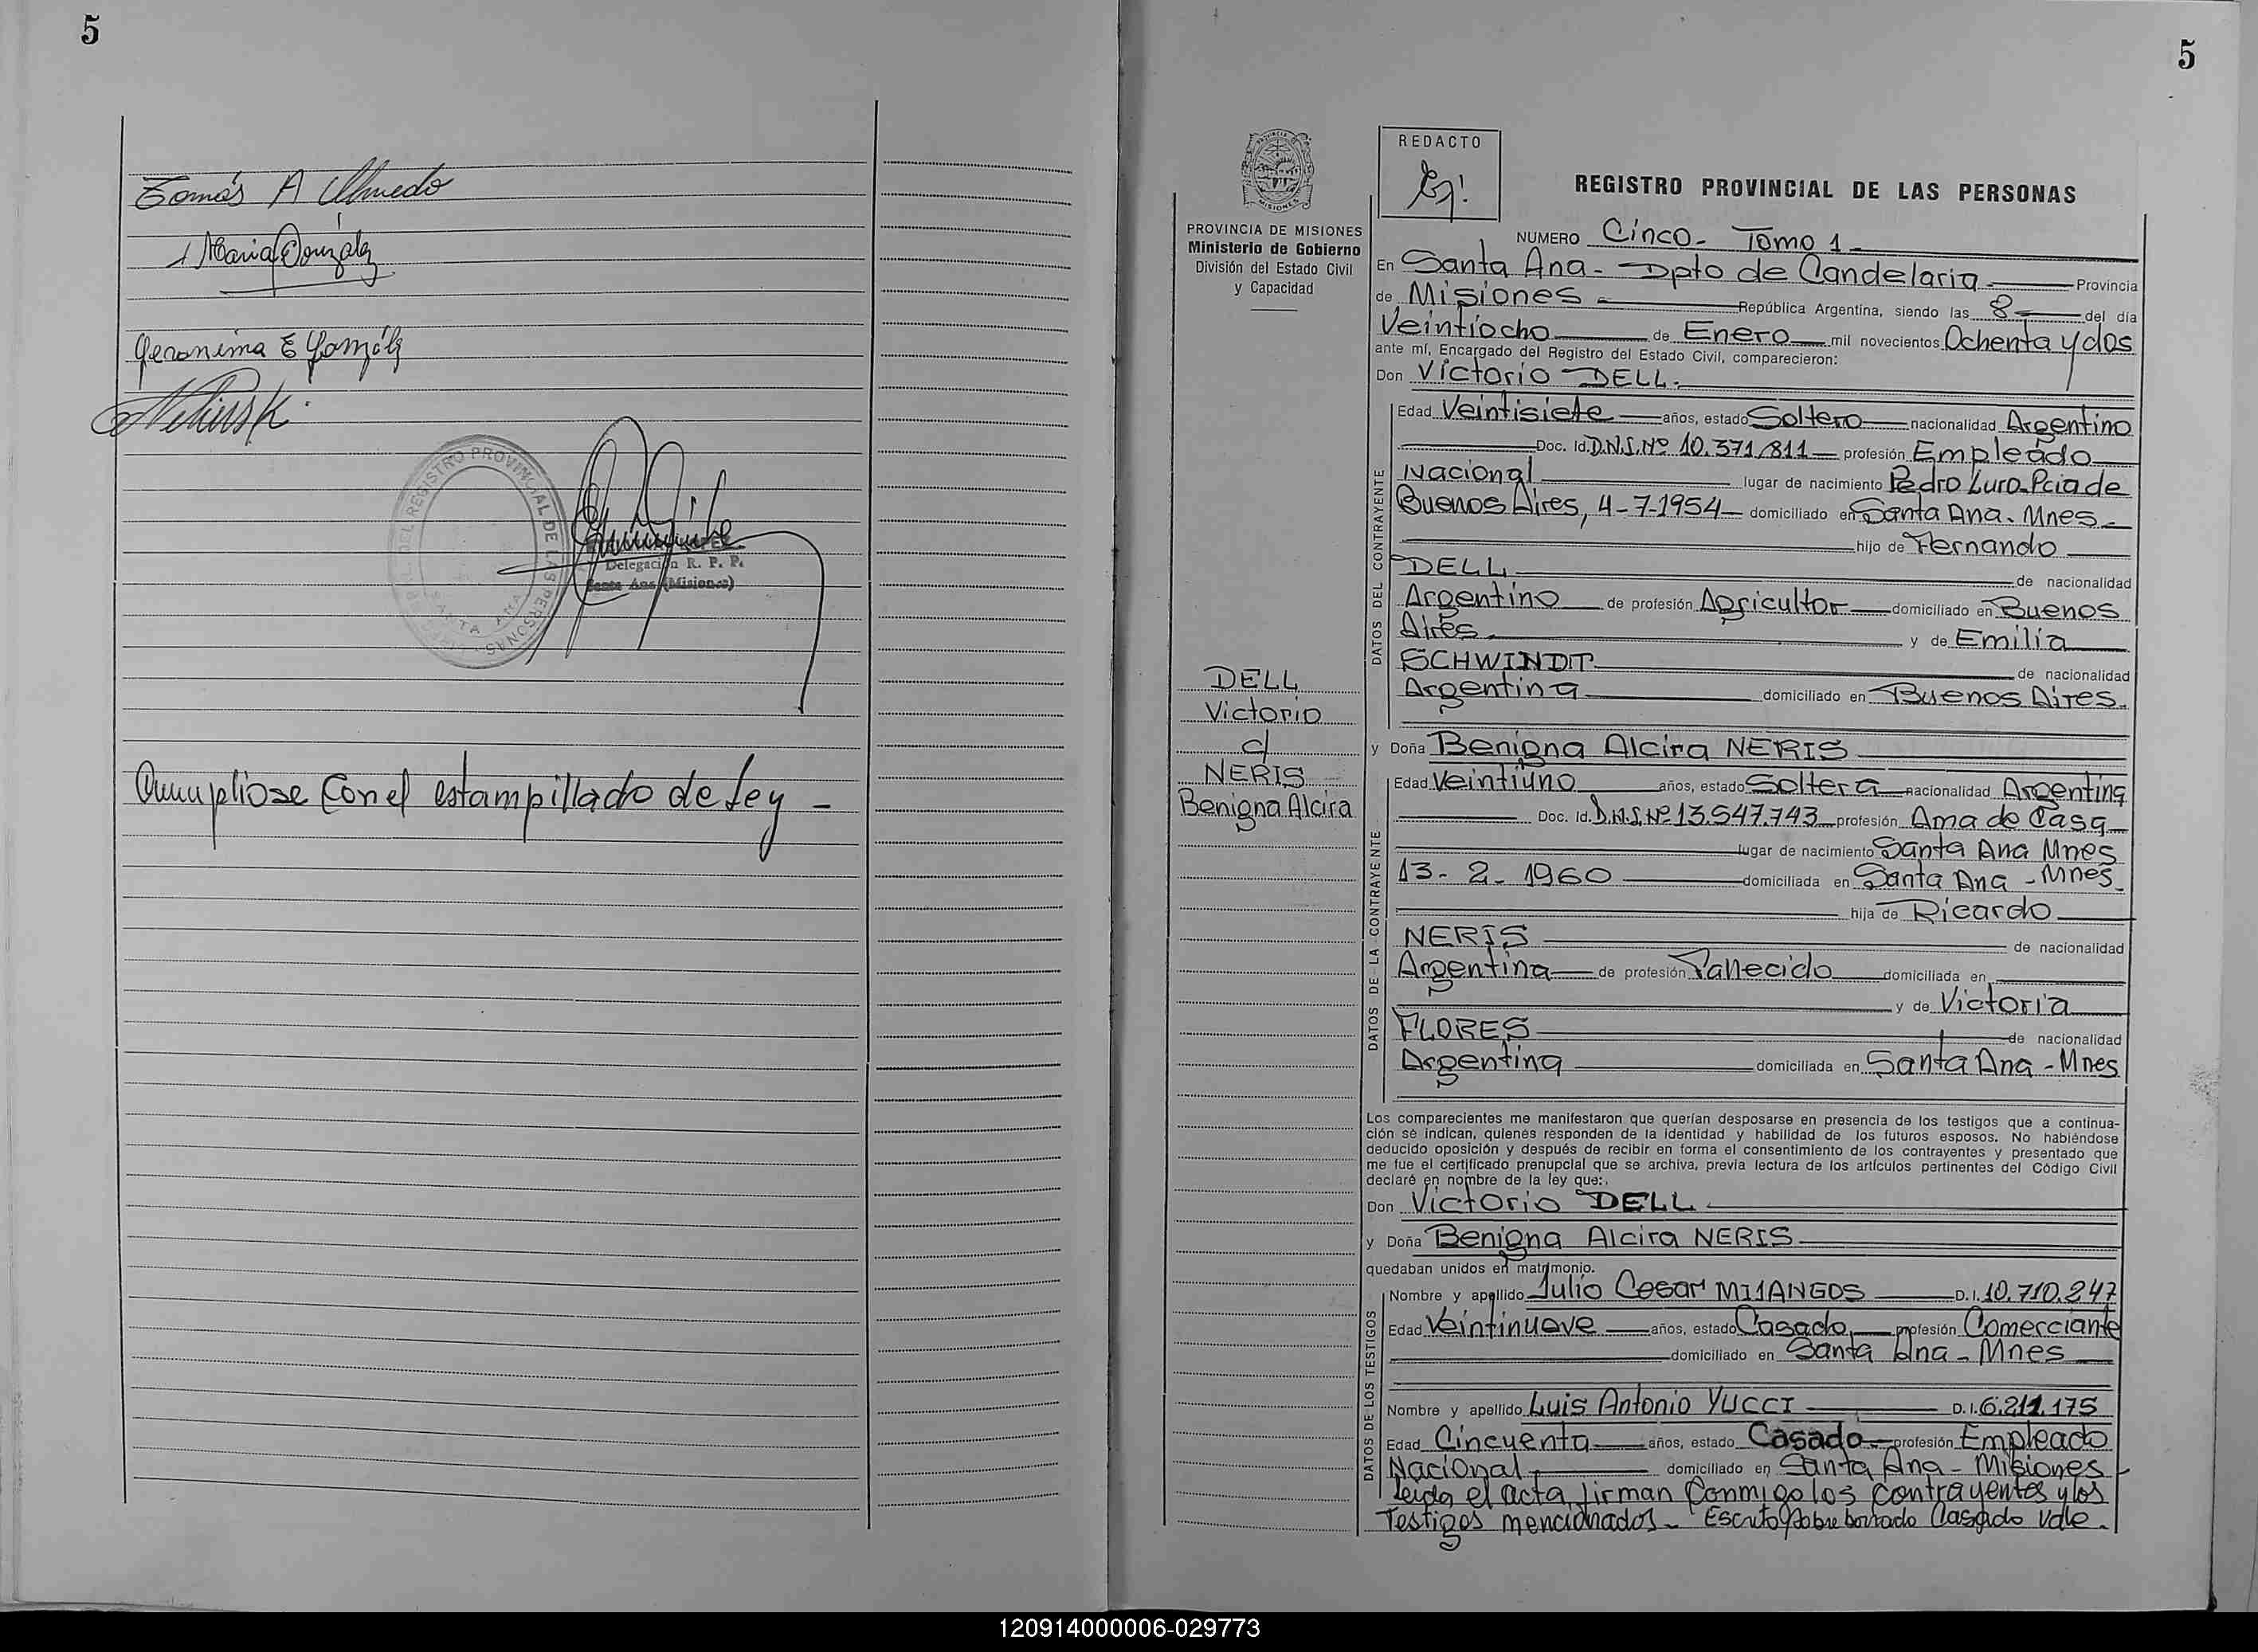 5
Tomás A Olmedo
Maria González
Geronima E González
REGISTRO PROVINCIAL DE LAS PERSONAS
SANTA ANA
Delegación R. P. P.
Santa Ana (Misiones)
Cumpliose con el estampillado de ley -
5
PROVINCIA DE MISIONES
Ministerio de Gobierno
División del Estado Civil
y Capacidad
DELL
Victorio
c/
NERIS
Benigna Alcira
REDACTO
REGISTRO PROVINCIAL DE LAS PERSONAS
NUMERO Cinco - Tomo 1 -
En Santa Ana - Dpto de Candelaria - Provincia
de Misiones - República Argentina, siendo las 8 - del día
Veintiocho de Enero mil novecientos Ochenta y dos
ante mí, Encargado del Registro del Estado Civil, comparecieron:
Don Victorio DELL -
Edad Veintisiete años, estado Soltero nacionalidad Argentino
Doc. Id. D.N.I. Nº 10.371.811 profesión Empleado
Nacional lugar de nacimiento Pedro Luro Pcia de
Buenos Aires, 4-7-1954 domiciliado en Santa Ana. Mnes -
hijo de Fernando
DELL de nacionalidad
Argentino de profesión Agricultor domiciliado en Buenos
Aires y de Emilia
SCHWINDT de nacionalidad
Argentina domiciliado en Buenos Aires.
y Doña Benigna Alcira NERIS
Edad Veintiuno años, estado Soltera nacionalidad Argentina
Doc. Id. D.N.I. Nº 13.547.743 profesión Ama de Casa
lugar de nacimiento Santa Ana Mnes
13 - 2 - 1960 domiciliada en Santa Ana - Mnes -
hija de Ricardo
NERIS de nacionalidad
Argentina de profesión Fallecido domiciliada en
y de Victoria
FLORES de nacionalidad
Argentina domiciliada en Santa Ana - Mnes
Los comparecientes me manifestaron que querían desposarse en presencia de los testigos que a continua-
ción se indican, quienes responden de la identidad y habilidad de los futuros esposos. No habiéndose
deducido oposición y después de recibir en forma el consentimiento de los contrayentes y presentado que
me fue el certificado prenupcial que se archiva, previa lectura de los artículos pertinentes del Código Civil
declaré en nombre de la ley que:
Don Victorio DELL
y Doña Benigna Alcira NERIS
quedaban unidos en matrimonio.
Nombre y apellido Julio Cesar MIJANGOS D.I. 10.710.247
Edad Veintinueve años, estado Casado profesión Comerciante
domiciliado en Santa Ana - Mnes
Nombre y apellido Luis Antonio YUCCI D.I. 6.211.175
Edad Cincuenta años, estado Casado profesión Empleado
Nacional domiciliado en Santa Ana - Misiones
leída el acta, firman conmigo los contrayentes y los
Testigos mencionados - Escrito sobre borrado Casado Vale.
DATOS DEL CONTRAYENTE
DATOS DE LA CONTRAYENTE
DATOS DE LOS TESTIGOS
120914000006-029773